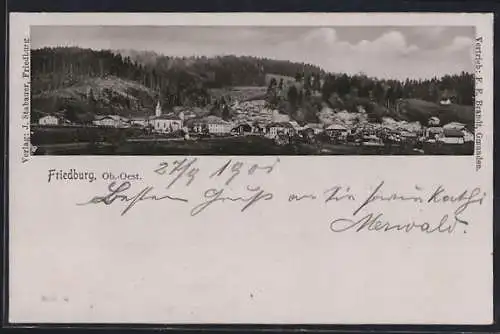 Verlag: J. Stabauer, Friedburg.
Vertrieb: E. E. Brandt, Gmunden.
Friedburg, Ob.-Oest.
27/9 1901
Besten Gruß an Sie sowie Kathi
Merwald.